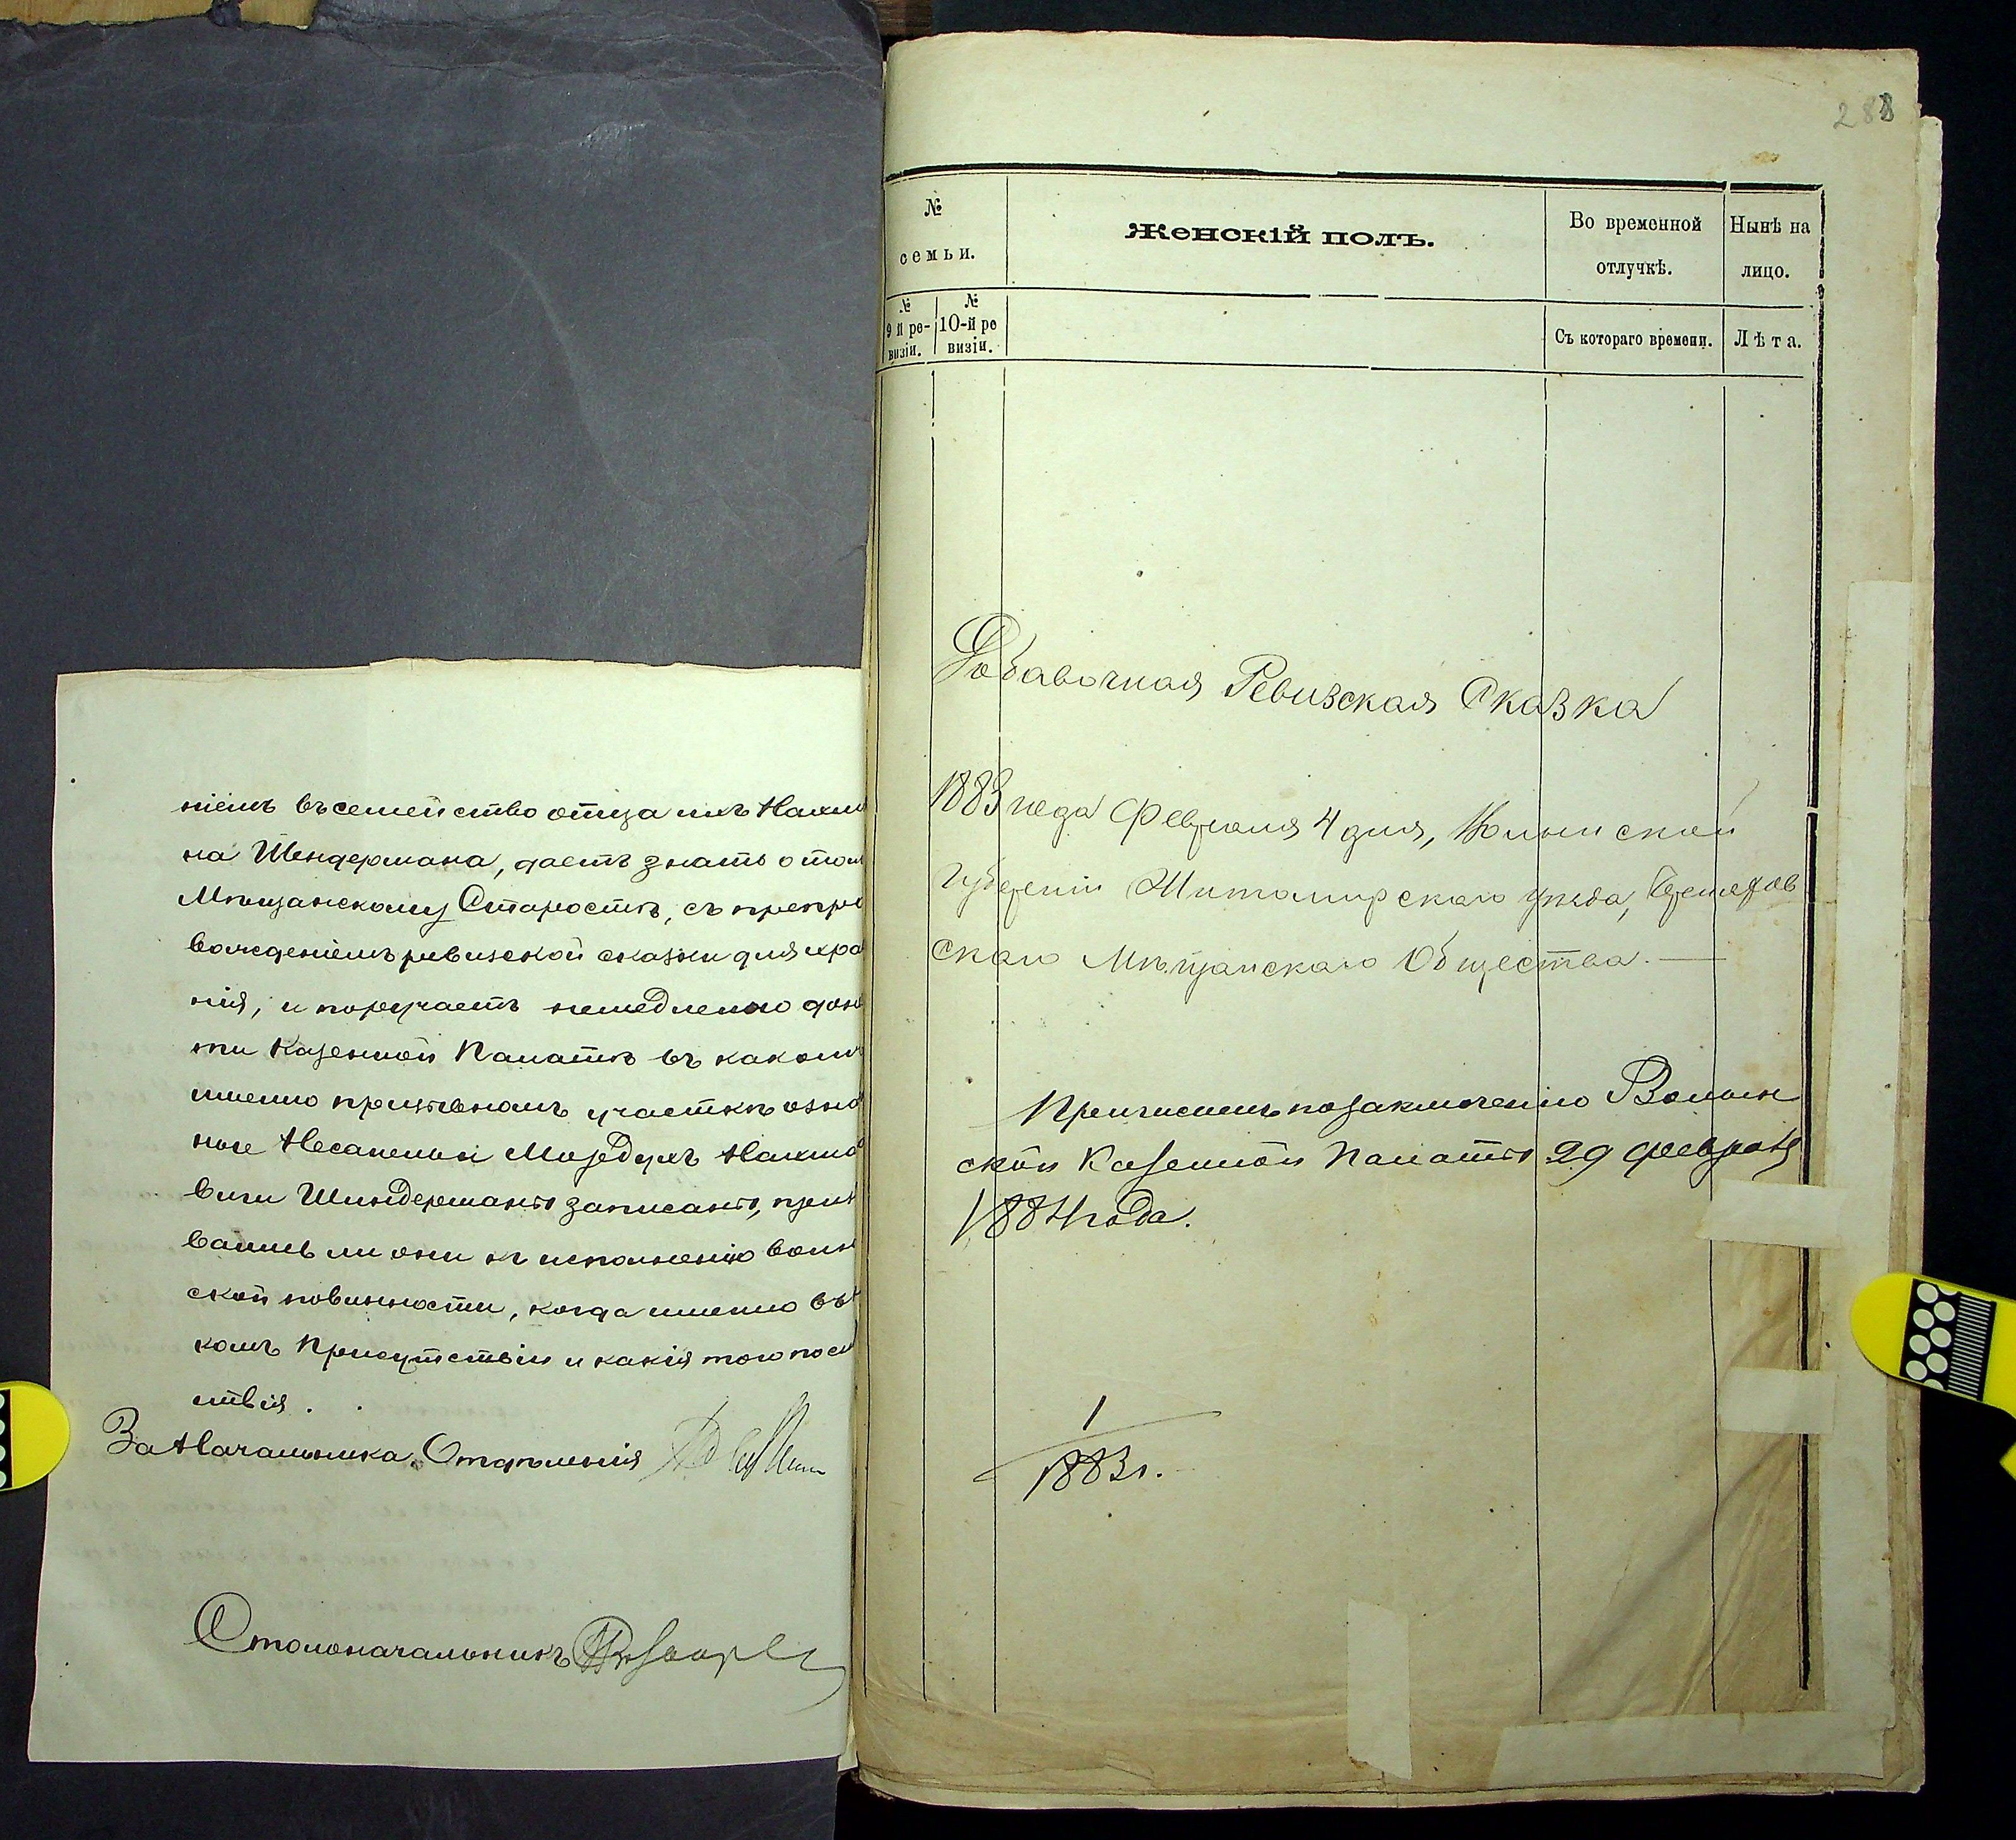 ніемъ въ семейство отца ихъ Нахма
на Шендермана, даетъ знать о том
Мѣщанскому Старостѣ, съ препро
вожденіемъ ревизской сказки для хра
нія, и поручаетъ немедленно доне
ти Казенной Палатѣ въ каком
именно призывномъ участкѣ озна
ные Несанель и Мордухъ Нахмо
вичи Шиндерманъ записанъ, призы
вались ли они къ исполненію воин
ской повинности, когда именно въ
комъ Присутствіи и какія того посл
ствія.
За Начальника Отдѣленія
Столоначальникъ
288
№ семьи.
Женскій полъ.
Во временной отлучкѣ.
Нынѣ на лицо.
№ 9 й ре-визіи.
№ 10-й ре визіи.
Съ котораго времени.
Лѣта.
Добавочная Ревизская Сказка
1883 года Февраля 4 дня, Волынской
Губерніи Житомирскаго уѣзда,
скаго Мѣщанскаго Общества.
Причисленъ по заключенію Волын
ской Казенной Палаты 29 февраля
1884 года.
1
1883 г.